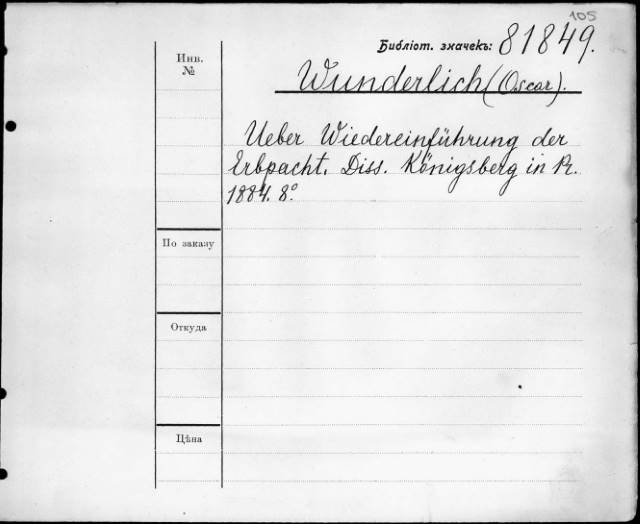 105
Библіот. значекъ: 81849.
Инв.
№
Wunderlich (Oscar).
Ueber Wiedereinführung der
Erbpacht. Diss. Königsberg in Pr.
1884. 8°.
По заказу
Откуда
Цѣна